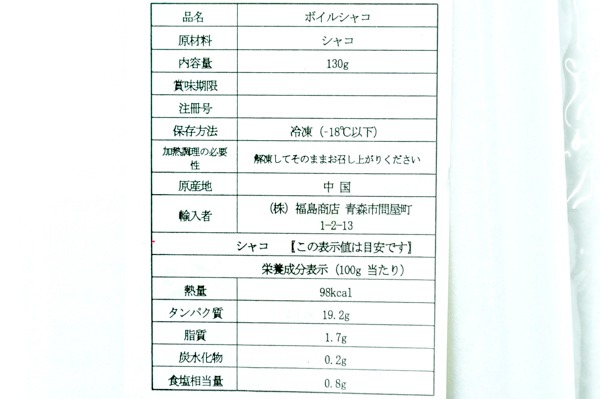 品名 ボイルシャコ
原材料 シャコ
内容量 130g
賞味期限
注冊号
保存方法 冷凍（-18℃以下）
加熱調理の必要
性 解凍してそのままお召し上がりください
原産地 中 国
輸入者 （株）福島商店 青森市問屋町
1-2-13
シャコ 【この表示値は目安です】
栄養成分表示（100g 当たり）
熱量 98kcal
タンパク質 19.2g
脂質 1.7g
炭水化物 0.2g
食塩相当量 0.8g